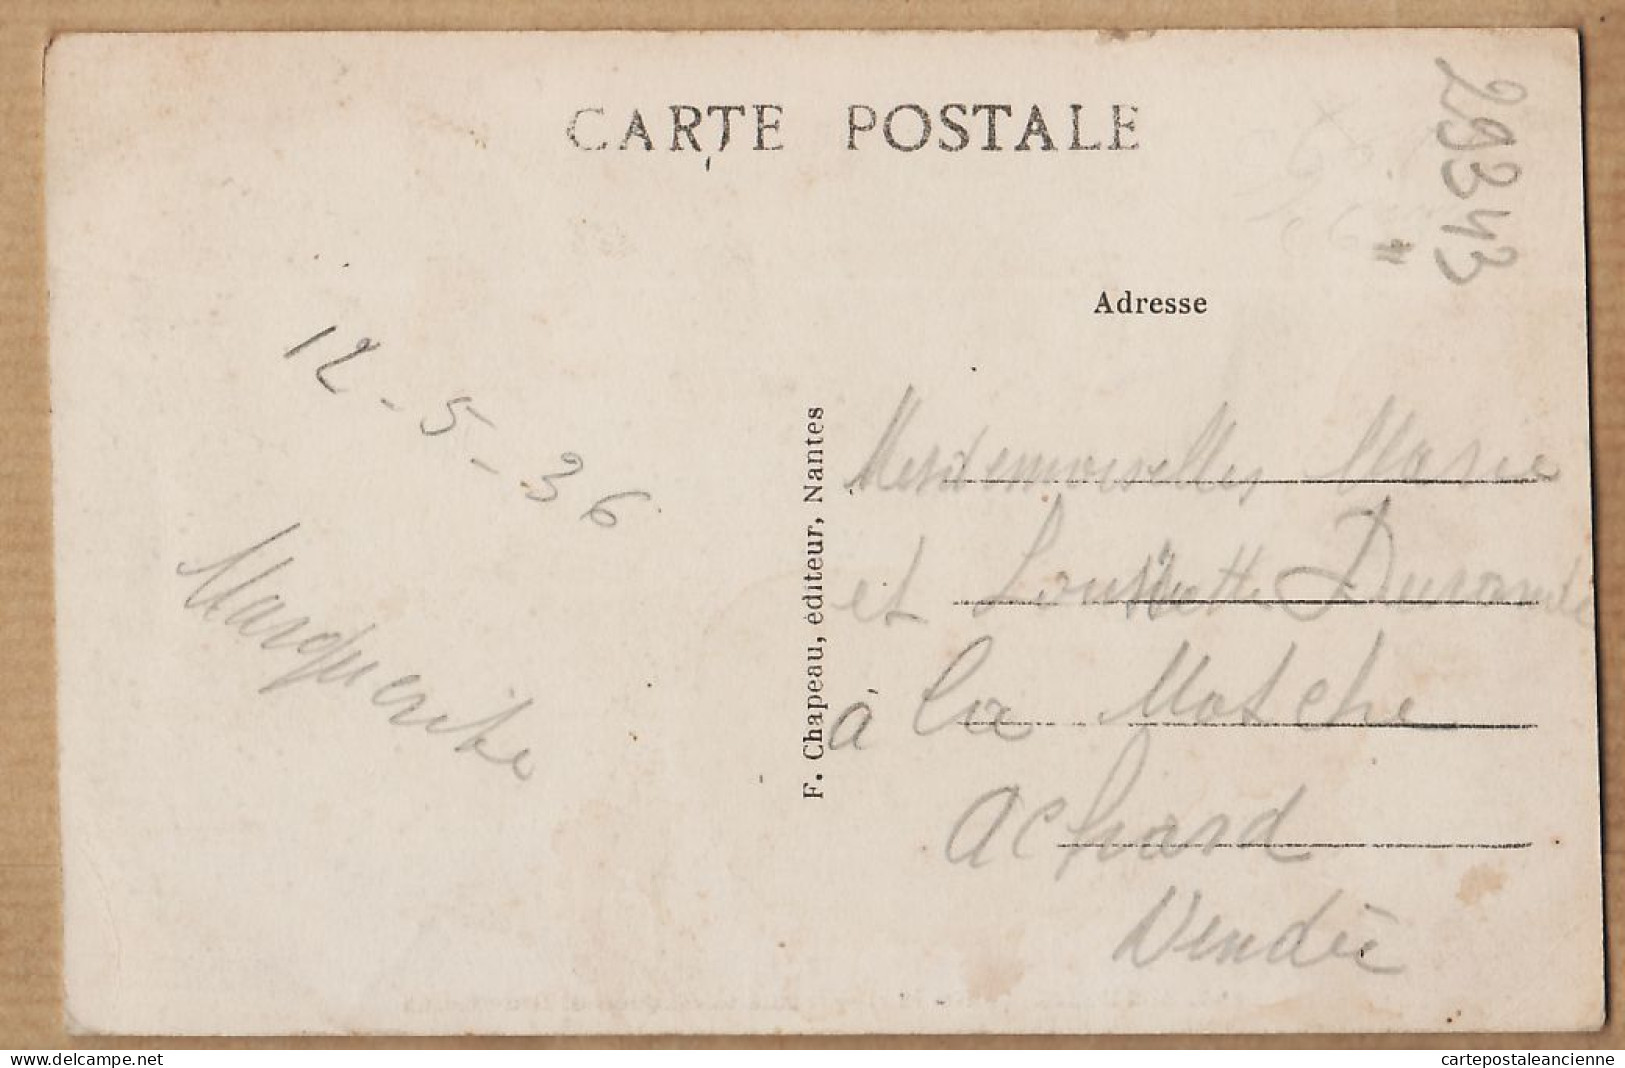 CARTE POSTALE
29343
Adresse
12-5-36
Marguerite
F. Chapeau, éditeur, Nantes
Mesdemoiselles Marie
et Lousette Durand
à la Motche
Achard
Vendée
cartepostaleancienne